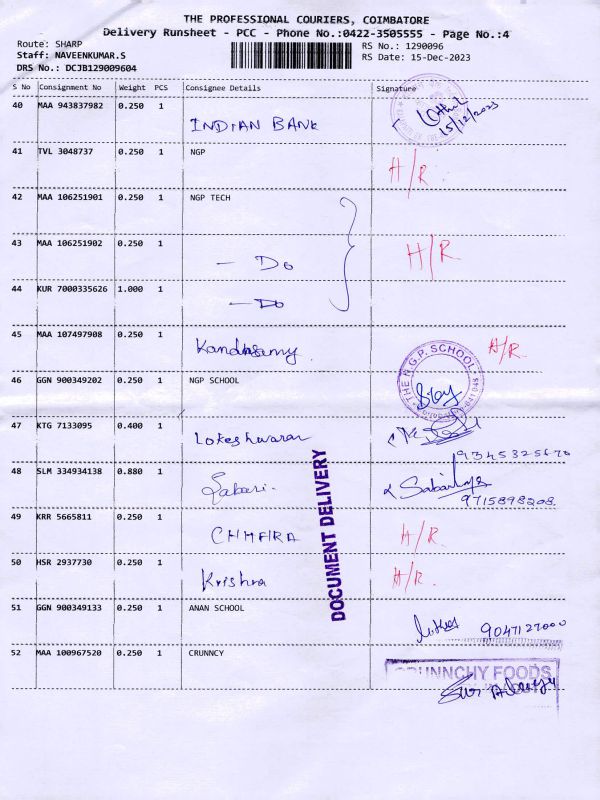 THE PROFESSIONAL COURIERS, COIMBATORE
Delivery Runsheet - PCC - Phone No.:0422-3505555 - Page No.:4
Route: SHARP RS No.: 1290096
Staff: NAVEENKUMAR.S RS Date: 15-Dec-2023
DRS No.: DCJB129009604
S No Consignment No Weight PCS Consignee Details Signature
40 MAA 943837982 0.250 1
INDIAN BANK 15/12/2023
41 TVL 3048737 0.250 1 NGP
H/R.
42 MAA 106251901 0.250 1 NGP TECH
43 MAA 106251902 0.250 1
- Do H/R
44 KUR 7000335626 1.000 1
- Do
45 MAA 107497908 0.250 1
Kandasamy H/R.
46 GGN 900349202 0.250 1 NGP SCHOOL
THE N.G.P. SCHOOL
47 KTG 7133095 0.400 1
Lokeshwaran
9345325670
48 SLM 334934138 0.880 1
Sabari.
9715898208
49 KRR 5665811 0.250 1
H/R.
50 HSR 2937730 0.250 1
Krishna H/R.
51 GGN 900349133 0.250 1 ANAN SCHOOL
9047127000
52 MAA 100967520 0.250 1 CRUNNCY
CRUNNCHY FOODS
DOCUMENT DELIVERY